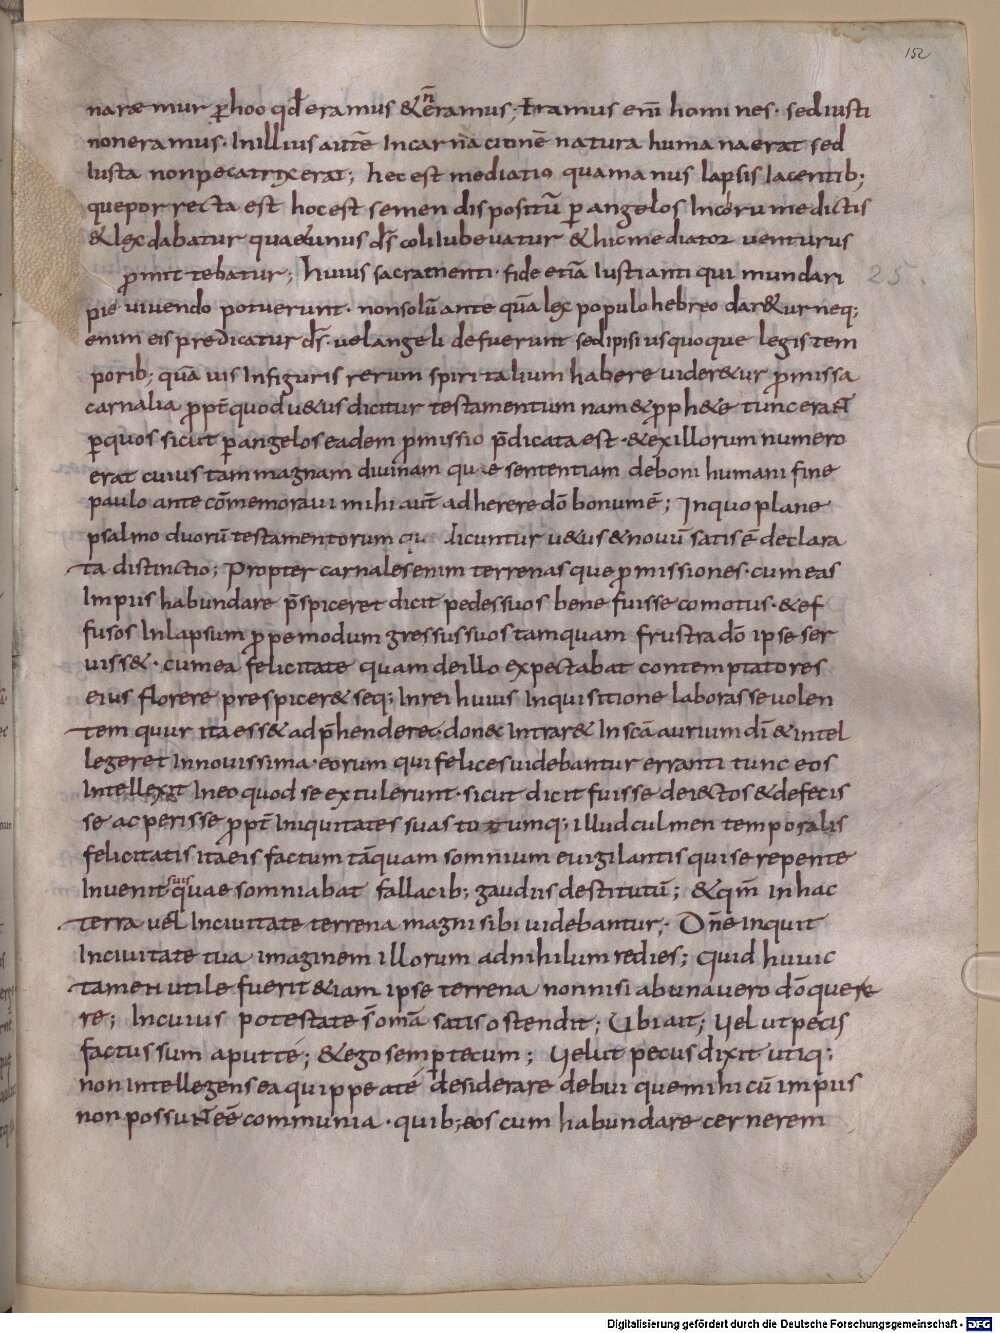 152
naræmur p̱ hoo qđ eramus &n̄eramus; Eramus eni᷎ homines· sed iusti
non eramus· In illius autē Incarnacionē natura humana erat sed
Iusta non pecatrix erat; hec est mediatio qua manus lapsis Iacentib;
que porrecta est hoc est semen dispositū p̱ angelos In corum edictis
& lex dabatur qua &unus d̄s coli Iubevatur & hic mediator venturus
promit tebatur; huius sacramenti· fide etiā Iusti anti qui mundari
pie vivendo potuerunt· non solū ante quā lex populo hebreo dar&ur neq;
enim eis predicatur d̄s· vel angeli defuerunt sed ipisi us quoque legis tem
porib; quā uis In figuris rerum spiri talium habere vider&ur p̱missa
carnalia p̱pt̄ quod u&us dicitur testamentum nam & p̱ph&e tunc erant
p̱ quos sicut p̱ angelos eadem p̱missio p̄dicata est· & ex illorum numero
erat cuius tam magnam divinam que sententiam de boni humani fine
paulo ante cōmemoravi mihi aut̄ ad herere dō bonum ē; In quo plane
psalmo duorū testamentorum qu dicuntur u&us & novū satis ē declara
ta distinctio; Propter carnales enim terrenas que p̱missiones· cum eas
Impiis habundare p̄spiceret dicit pedes suos bene fuisse comotus· & ef
fusos In lapsum p̱pe modum gressus suos tamquam frustra dō ipse ser
viss&· cum ea felicitate quam de illo expectabat contemptatores
eius florere prespicer& seq; In rei huius Inquisitione laborasse volen
tem quur ita ess& ad p̄henderet· don& Intrar& In scā aurium dī & intel
legeret In novissima· eorum qui felices videbantur erranti tunc eos
Intellexit In eo quod se extulerunt· sicut dicit fuisse deiectos & defecis
se ac perisse p̱pt̄ Iniquitates suas totumq; illud culmen temporalis
felicitatis ita eis factum tāquam somnium evigilantis qui se repente
Invenit suis quae somniabat fallacib; gaudiis destitutū; & qm̄ in hac
terra vel In civitate terrena magni sibi videbantur; Dn̄e inquit
In civitate tua imaginem illorum ad nihilum redies; Quid huic
tamen utile fuerit &iam ipse terrena non nisi ab una vero dō quere
re; In cuius potestate s̄ omā satis ostendit; Ubi ait; Vel ut pecis
factus sum aput te; & ego semp̱ tecum; Velut pecus dixit utiq;
non intellegens ea quippe a te desiderare debui que mihi cū impiis
non possunt eē communia· quib; eos cum habundare cernerem
25.
Digitalisierung gefördert durch die Deutsche Forschungsgemeinschaft - DFG